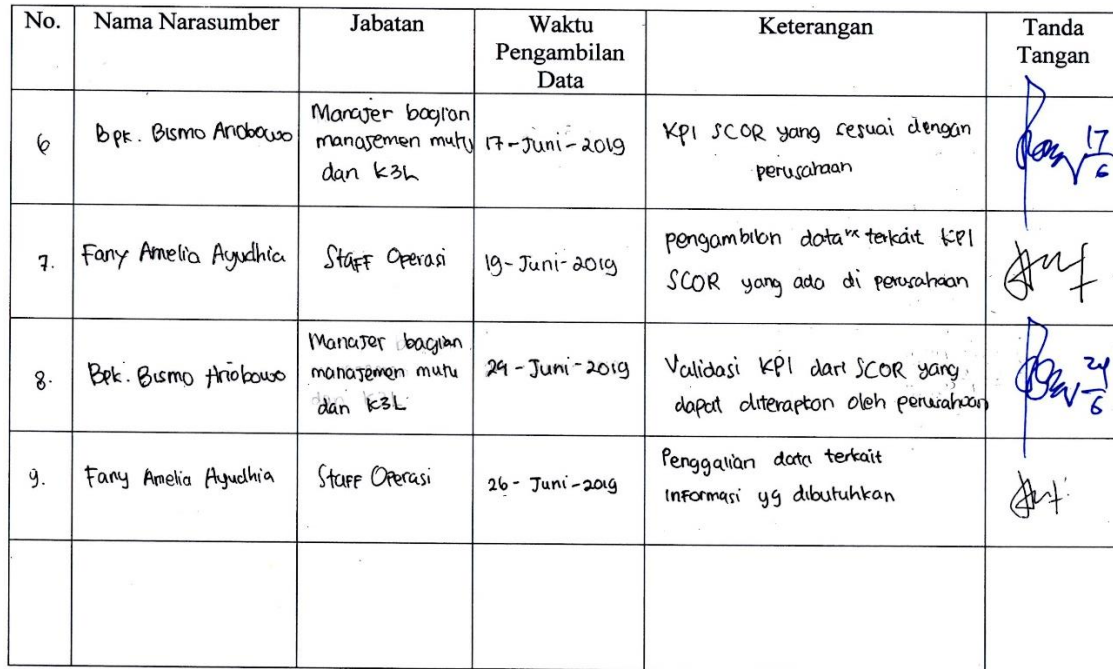 No.
Nama Narasumber
Jabatan
Waktu
Pengambilan
Data
Keterangan
Tanda
Tangan
6
Bpk. Bismo Ariobowo
Manajer bagian
manajemen mutu
dan K3L
17-Juni-2019
KPI SCOR yang sesuai dengan
perusahaan
17
6
7.
Fany Amelia Ayudhia
Staff Operasi
19-Juni-2019
pengambilan data" terkait KPI
SCOR yang ada di perusahaan
8.
Bpk. Bismo Ariobowo
Manajer bagian
manajemen mutu
dan K3L
24-Juni-2019
Validasi KPI dari SCOR yang
dapat diterapkan oleh perusahaan
24
6
9.
Fany Amelia Ayudhia
Staff Operasi
26-Juni-2019
Penggalian data terkait
informasi yg dibutuhkan